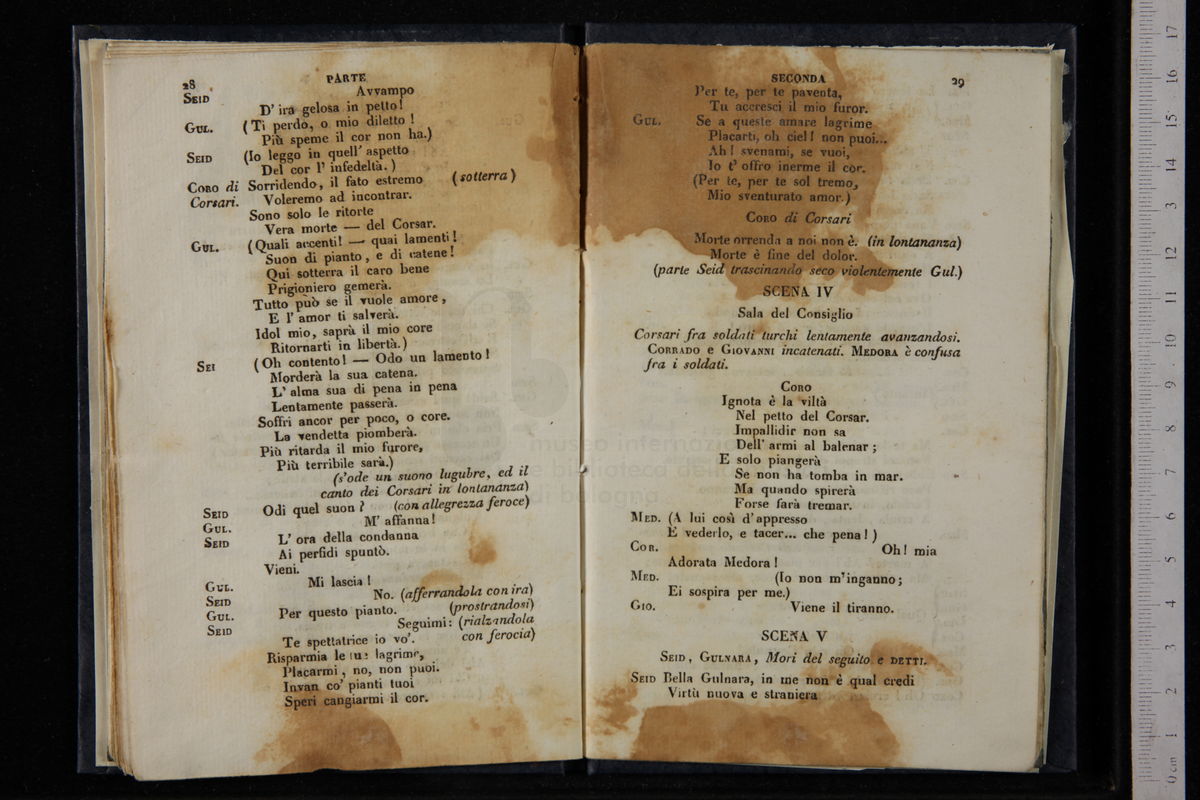 28
PARTE
SEID Avvampo
D' ira gelosa in petto!
GUL. (Ti perdo, o mio diletto!
Più speme il cor non ha.)
SEID (Io leggo in quell' aspetto
Del cor l' infedeltà.)
CORO di Corsari. Sorridendo, il fato estremo (sotterra)
Voleremo ad incontrar.
Sono solo le ritorte
Vera morte — del Corsar.
GUL. (Quali accenti! — quai lamenti!
Suon di pianto, e di catene!
Qui sotterra il caro bene
Prigioniero gemerà.
Tutto può se il vuole amore,
E l' amor ti salverà.
Idol mio, saprà il mio core
Ritornarti in libertà.)
SEI (Oh contento! — Odo un lamento!
Morderà la sua catena.
L' alma sua di pena in pena
Lentamente passerà.
Soffri ancor per poco, o core.
La vendetta piomberà.
Più ritarda il mio furore,
Più terribile sarà.)
(s'ode un suono lugubre, ed il
canto dei Corsari in lontananza)
SEID Odi quel suon? (con allegrezza feroce)
GUL. M' affanna!
SEID L' ora della condanna
Ai perfidi spuntò.
Vieni.
GUL. Mi lascia!
SEID No. (afferrandola con ira)
GUL. Per questo pianto. (prostrandosi)
SEID Seguimi: (rialzandola
Te spettatrice io vo'. con ferocia)
Risparmia le tue lagrime,
Placarmi, no, non puoi.
Invan co' pianti tuoi
Speri cangiarmi il cor.
SECONDA
29
Per te, per te paventa,
Tu accresci il mio furor.
GUL. Se a queste amare lagrime
Placarti, oh ciel! non puoi...
Ah! svenami, se vuoi,
Io t' offro inerme il cor.
(Per te, per te sol tremo,
Mio sventurato amor.)
CORO di Corsari
Morte orrenda a noi non è. (in lontananza)
Morte è fine del dolor.
(parte Seid trascinando seco violentemente Gul.)
SCENA IV
Sala del Consiglio
Corsari fra soldati turchi lentamente avanzandosi.
CORRADO e GIOVANNI incatenati. MEDORA è confusa
fra i soldati.
CORO
Ignota è la viltà
Nel petto del Corsar.
Impallidir non sa
Dell' armi al balenar;
E solo piangerà
Se non ha tomba in mar.
Ma quando spirerà
Forse farà tremar.
MED. (A lui così d'appresso
E vederlo, e tacer... che pena!)
COR. Oh! mia
Adorata Medora!
MED. (Io non m'inganno;
Ei sospira per me.)
GIO. Viene il tiranno.
SCENA V
SEID, GULNARA, Mori del seguito e DETTI.
SEID Bella Gulnara, in me non è qual credi
Virtù nuova e straniera
museo internazio
e biblioteca de
di bologna
0 cm 1 2 3 4 5 6 7 8 9 10 11 12 13 14 15 16 17